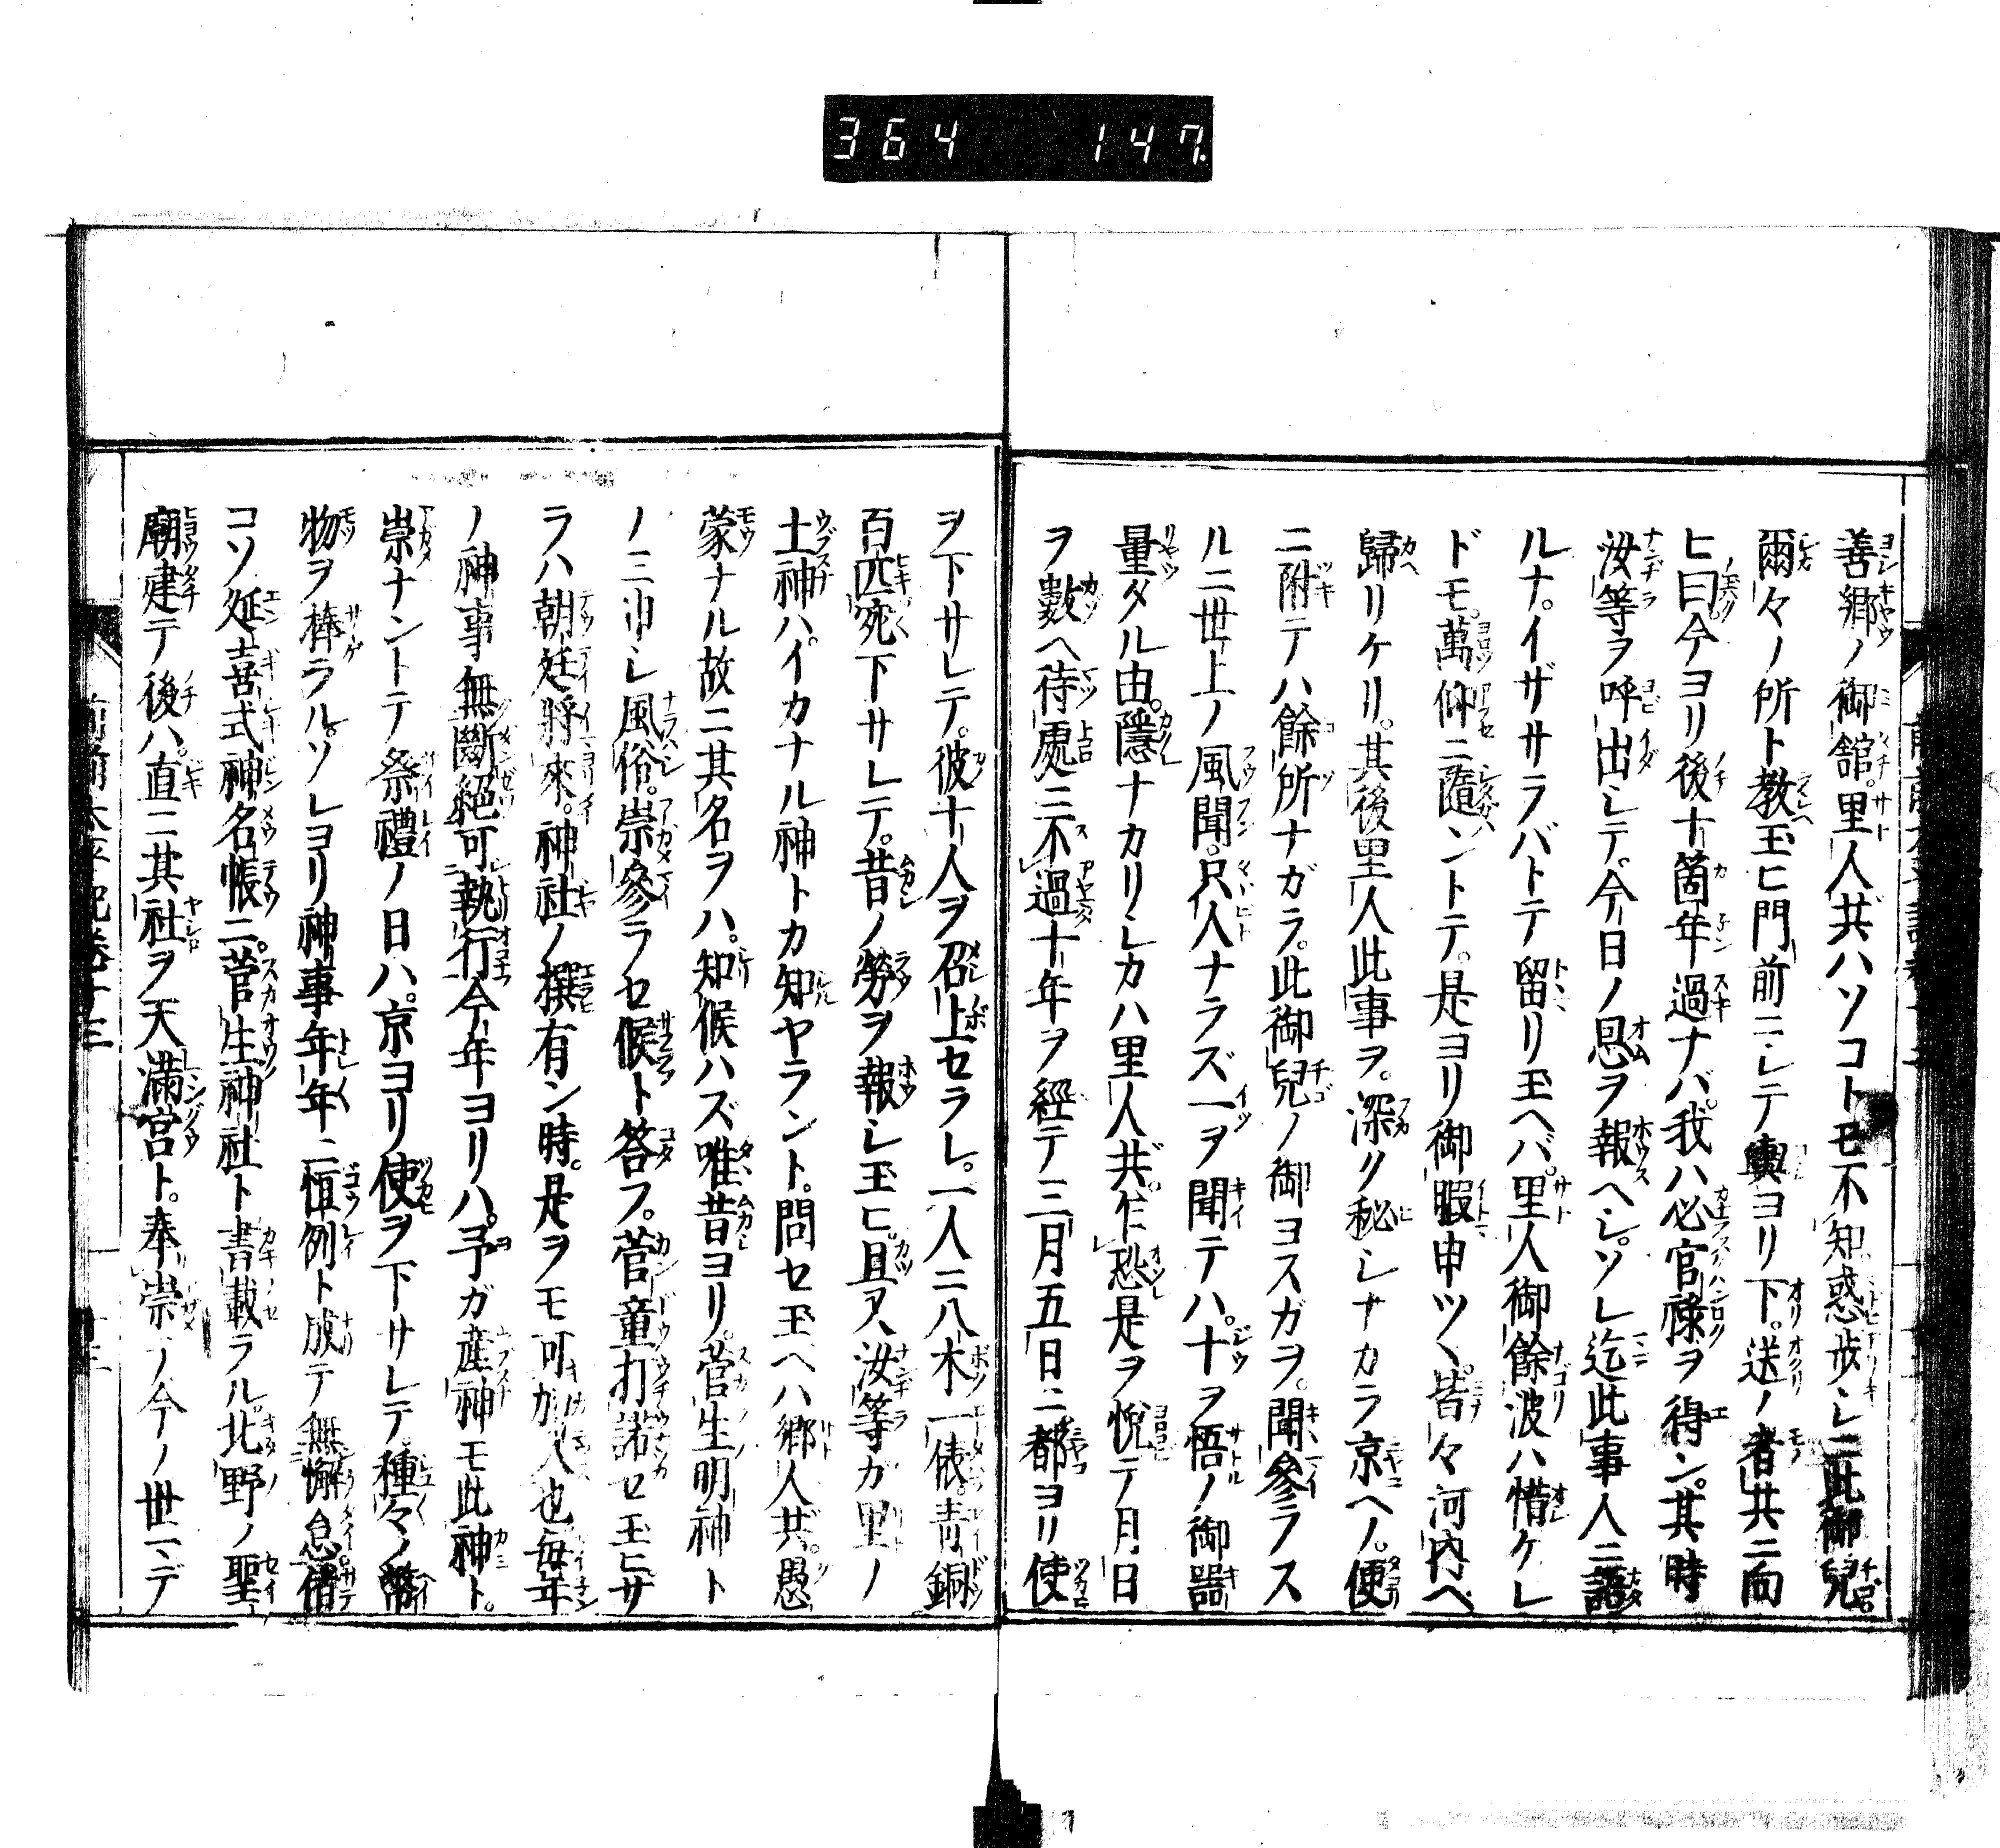 364 147
善郷ノ御舘。里人共ハソコトモ不知惑歩シニ此御兒
爾々ノ所ト教玉ヒ門前ニシテ輿ヨリ下。送ノ者共ニ向
ヒ曰。今ヨリ後十箇年過ナバ。我ハ必官祿ヲ得ン。其時
汝等ヲ呼出シテ。今日ノ恩ヲ報ヘシ。ソレ迄此事人ニ語
ルナ。イザサラバトテ留リ玉ヘバ。里人御餘波ハ惜ケレ
ドモ。萬仰ニ隨ントテ。是ヨリ御暇申ツヽ。皆々河内ヘ
歸リケリ。其後里人此事ヲ。深ク秘シナカラ京ヘノ。便
ニ附テハ餘所ナガラ。此御兒ノ御ヨスガヲ。聞參ラス
ルニ世上ノ風聞。只人ナラズ一ヲ聞テハ。十ヲ悟ノ御器
量タル由。隱ナカリシカハ里人共。乍恐是ヲ悅テ月日
ヲ數ヘ待處ニ不過十年ヲ經テ三月五日ニ都ヨリ使
ヲ下サレテ。彼十人ヲ召上セラレ。一人ニ八木一俵。青銅
百匹宛下サレテ。昔ノ勞ヲ報シ玉ヒ。且ハ汝等カ里ノ
土神ハ。イカナル神トカ知ヤラント。問セ玉ヘハ郷人共。愚
蒙ナル故ニ其名ヲハ。知候ハズ唯昔ヨリ。菅生明神ト
ノミ申シ風俗。崇參ラセ候ト答フ。菅童打諾セ玉ヒサ
ラハ朝廷將來。神社ノ撰有ン時。是ヲモ可加入也毎年
ノ神事無斷絕可執行今年ヨリハ。予ガ産神モ此神ト。
崇ナントテ祭禮ノ日ハ。京ヨリ使ヲ下サレテ。種々ノ幣
物ヲ棒ラル。ソレヨリ神事年年ニ恒例ト成テ無懈怠。偖
コソ延喜式神名帳ニ。菅生神社ト書載ラル。北野ノ聖
廟建テ後ハ。直ニ其社ヲ天滿宮ト。奉崇ノ今ノ世ニデ